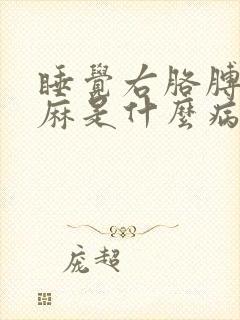 睡覺右胳膊
麻是什麼病
庞超